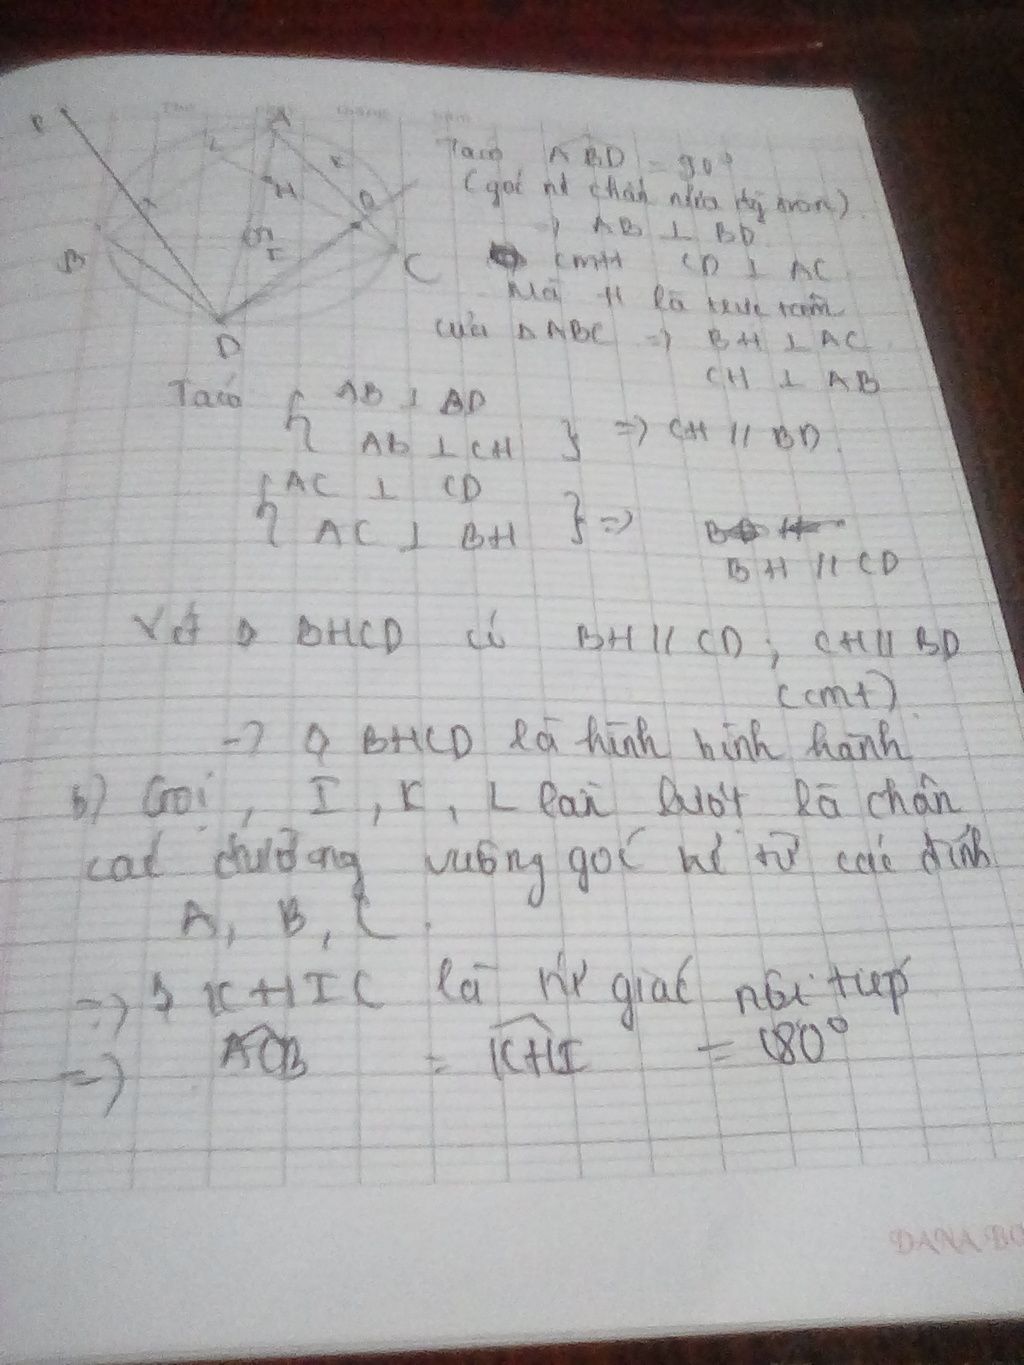 P
L
A
K
H
Q
I
B
C
D
Ta có ABD = 90°
(góc nt chắn nửa đg tròn)
=> AB ⊥ BD
CMTT CD ⊥ AC
Mà H là trực tâm
của Δ ABC => BH ⊥ AC
CH ⊥ AB
Ta có { AB ⊥ BD
AB ⊥ CH } => CH // BD.
{ AC ⊥ CD
AC ⊥ BH } =>
BH // CD
Xét BHCD có BH // CD; CH // BD
(cmt)
=> BHCD là hình bình hành
b) Gọi, I, K, L lần lượt là chân
các đường vuông góc hẻ từ các đỉnh
A, B, C.
=> KHIC là tứ giác nội tiếp
=> ACB = KHI = 180°
DANA BO